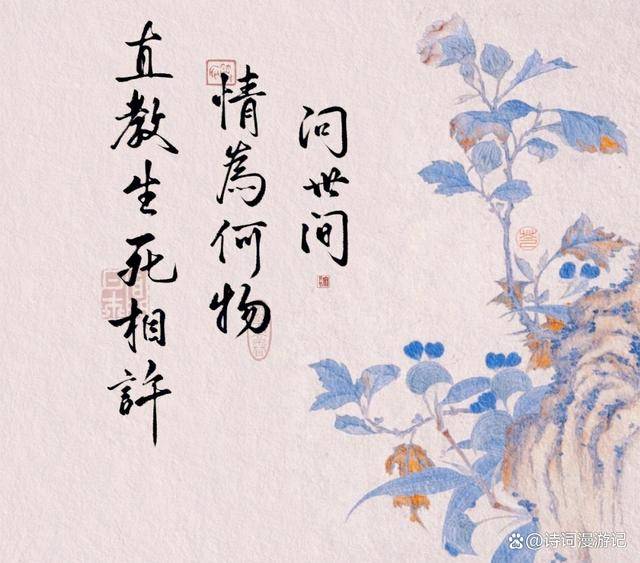 问世间
情為何物
直教生死相許
诗词漫游记